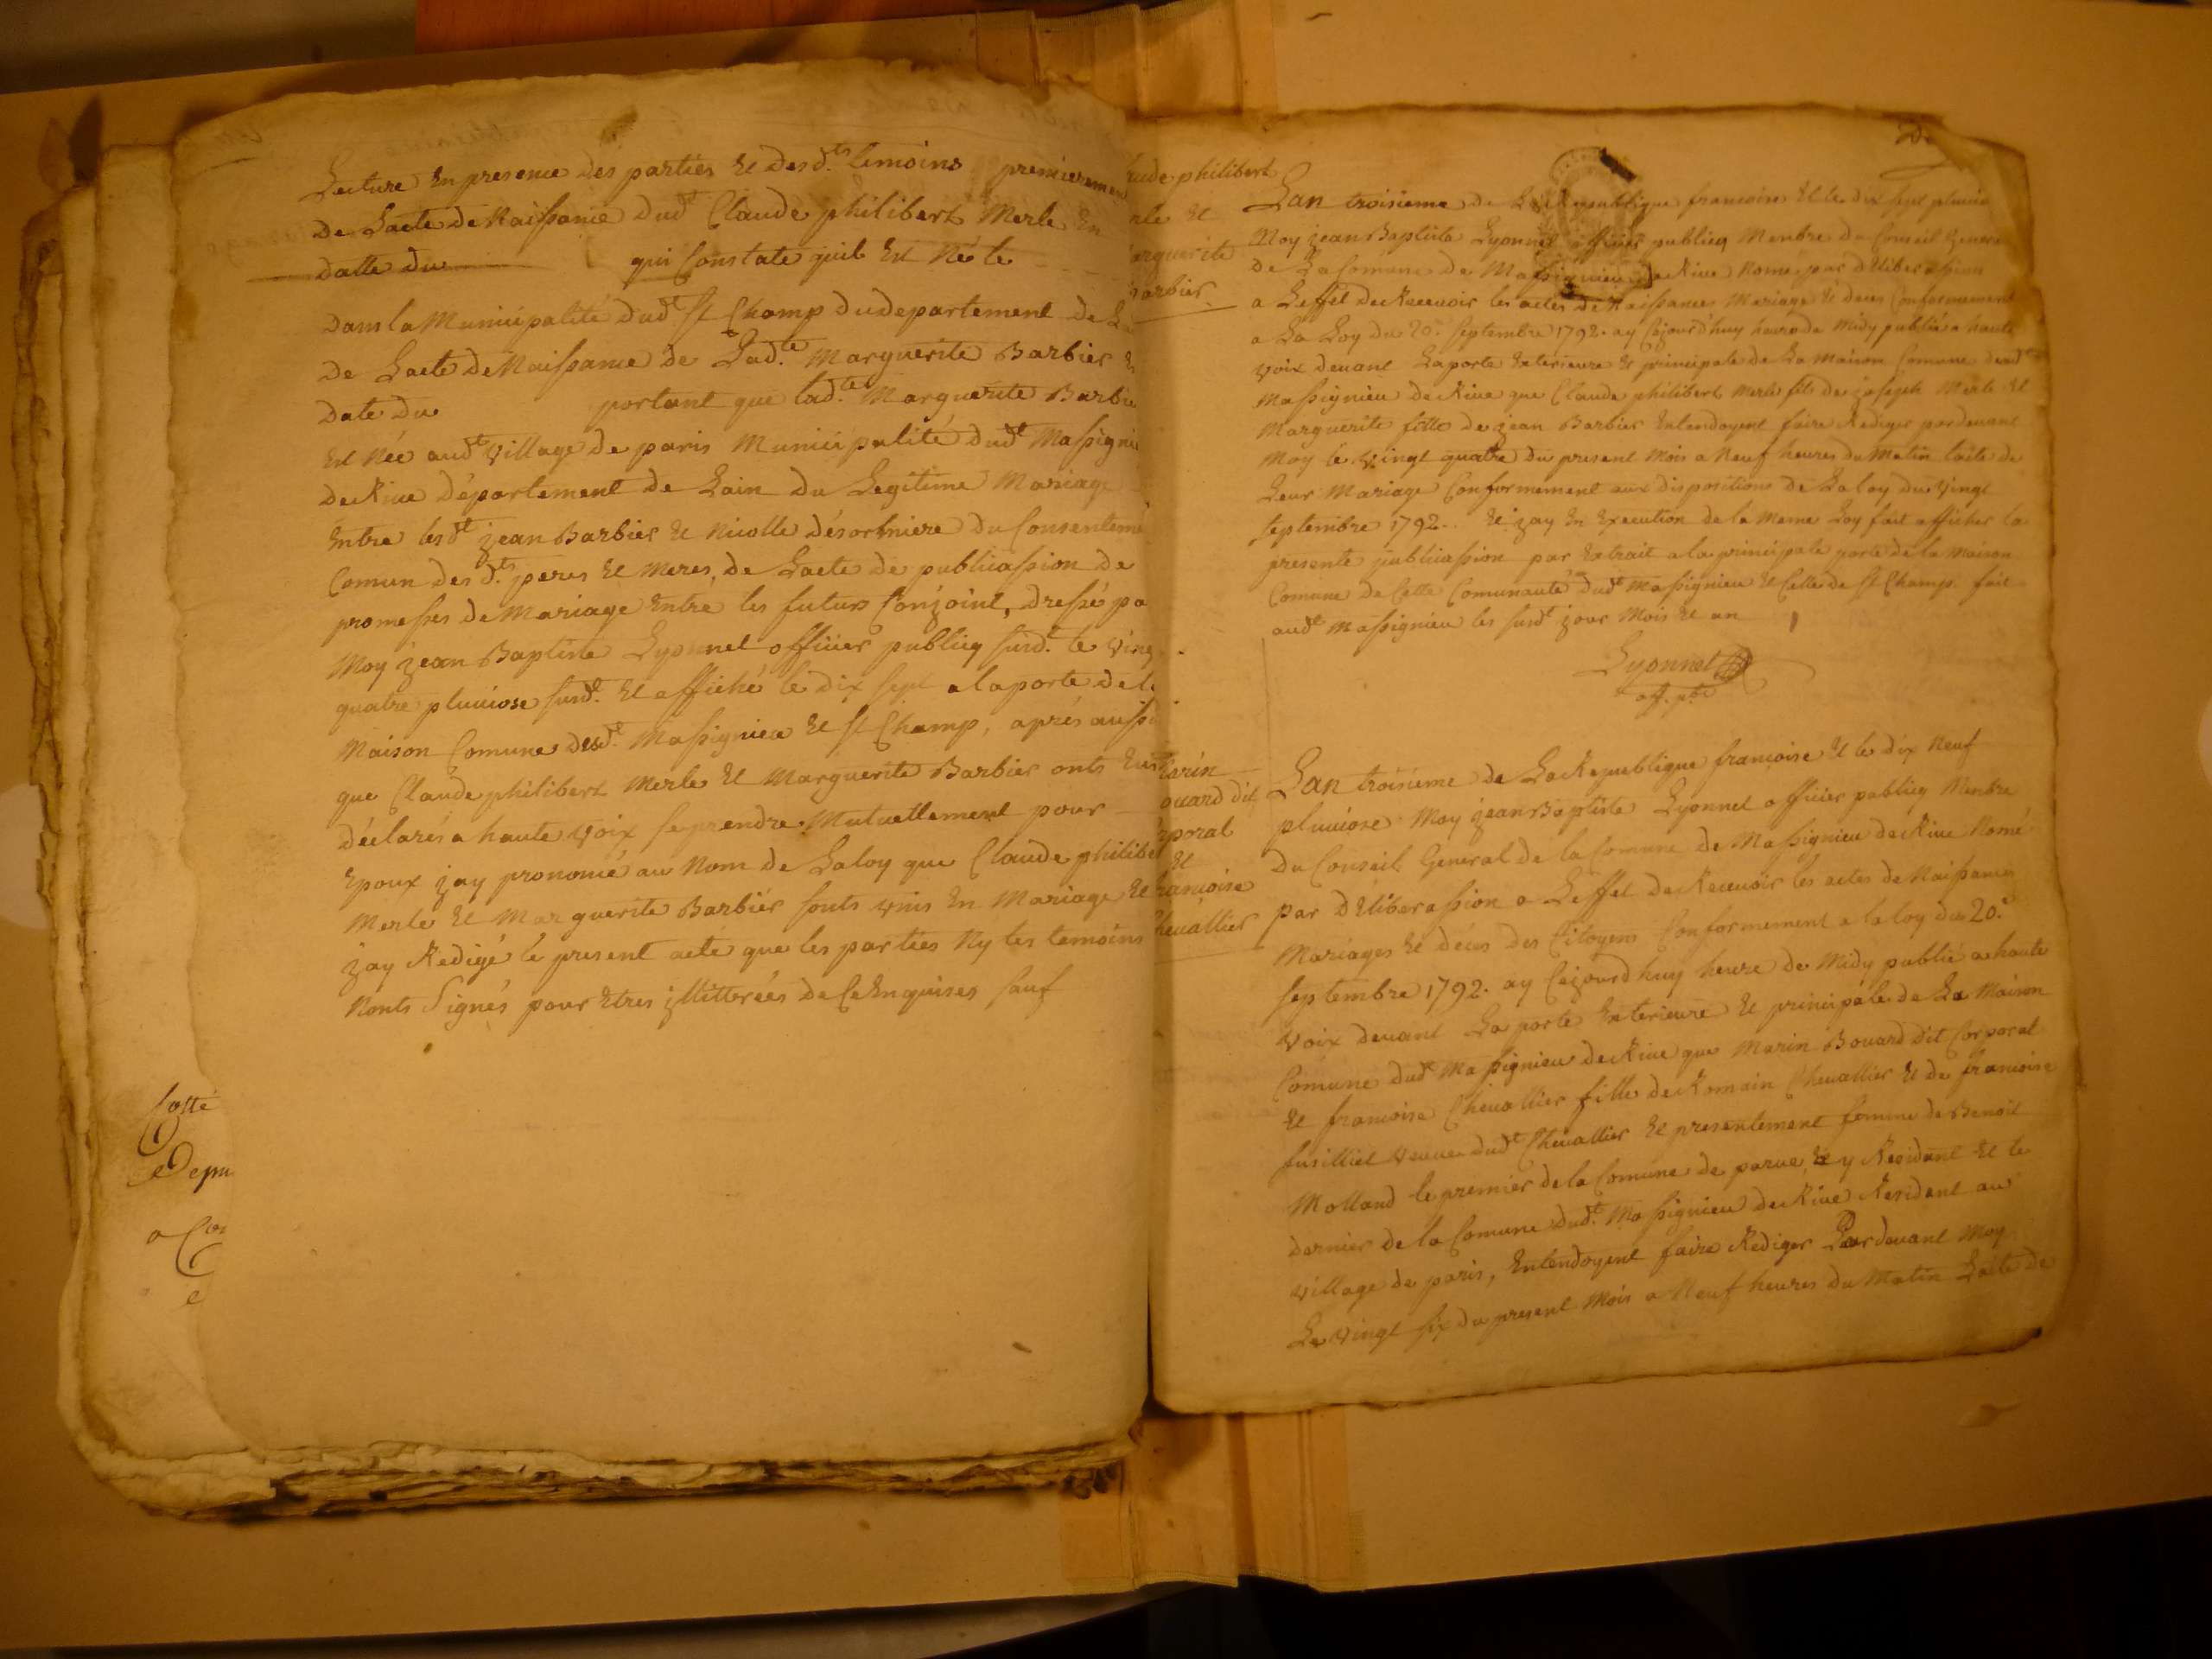 Lecture En presence des parties Et desd.ts temoins premierement
de Lacte de Naissance dud.t Claude philibert Merle En
datte du qui Constate quil Est Né le
dans la Municipalité dud.t St Champ du departement de
de Lacte de Naissance de Lad.te Marguerite Barbier
date du portant que lad.te Marguerite Barbie
Est Née aud.t village de paris Municipalité dud.t Massignie
de Rive département de Lain du Legitime Mariage
Entre lesd.t jean Barbier Et Nicolle désorbniere du Consenteme
Comun des d.ts peres Et Meres, de Lacte de publicassion de
promesses de Mariage Entre les futurs Conjoint, dressé pa
Moy jean Baptiste Lyonnel officier publicq susd.t le ving
quatre pluviose susd.t Et affiché le dix sept a laporte de la
Maison Comune desd.t Massignieu Et St Champ, après aussi
que Claude philibert Merle Et Marguerite Barbier onts Eus
déclarés a haute voix se prendre Mutuellement pour
Epoux jay prononcé au Nom de Laloy que Claude philiber
Merle Et Marguerite Barbier sonts unis En Mariage Et
jay Redigé le present acte que les parties Ny les temoins
Nonts Signés pour Etres jllittérées de Ce Enquises sauf
Cotté
e depu
a Cor
e
aude philibert
rle Et
arguerite
arbier
Lan troisieme de La Republique francoise Et le dix sept pluvio
Moy jean Baptiste Lyonnel officier publicq Menbre du Conseil Genera
de La Comune de Massignieu de Rive Nomé par déliberassion
a Leffet de Recevoir les actes de Naissances Mariage Et déces Conformement
a La Loy du 20.e septembre 1792. ay Cejourd'huy heure de Midy publié a haute
voix devant Laporte Exterieure Et principale de La Maison Comune dud.t
Massignieu de Rive que Claude philibert Merle fils de joseph Merle Et
Marguerite fille de jean Barbier Entendoyent faire Rediger pardevant
Moy le vingt quatre du present Mois a Neuf heures du Matin Lacte de
Leur Mariage Conformement aux dispositions de La loy du vingt
septembre 1792. Et jay En Execution de la Meme Loy fait afficher la
presente publicassion par Extrait a la principale porte de la Maison
Comune de Cette Comunauté dud.t Massignieu Et Celle de St Champ fait
aud.t Massignieu les susd.t jour Mois Et an
Lyonnel
off. pbc
arin
ouard dit
rporal
Et
rancoise
hevallier
Lan troisieme de La Republique francoise Et le dix Neuf
pluviose Moy jean Baptiste Lyonnel officier publicq Menbre
du Conseil General de la Comune de Massignieu de Rive Nomé
par déliberassion a Leffet de Recevoir les actes de Naissances
Mariages Et déces des Citoyens Conformement a la loy du 20.e
septembre 1792. ay Cejourd huy heure de Midy publié a haute
voix devant La porte Exterieure Et principale de La Maison
Comune dud.t Massignieu de Rive que Marin Bouard dit Corporal
Et francoise Chevallier fille de Romain Chevallier Et de francoise
fusilliet veuve dud.t Chevallier Et presentement femme de Benoit
Molland le premier de la Comune de parve Et y Residant Et le
dernier de la Comune dud.t Massignieu de Rive Resident au
village de paris, Entendoyent faire Rediger Pardevant Moy
Le vingt six du present Mois a Neuf heures du Matin Lacte de